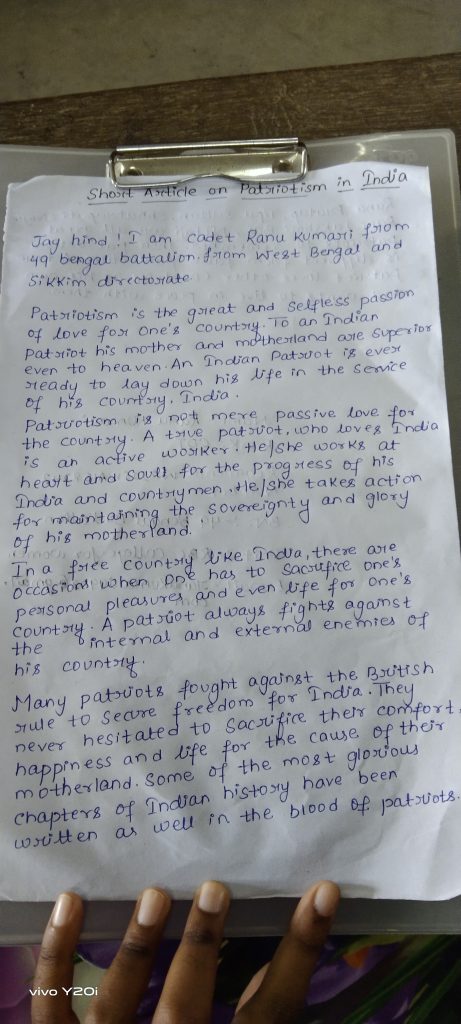 Short Article on Patriotism in India
Jay hind ! I am cadet Ranu Kumari from
49 bengal battalion from West Bengal and
Sikkim directorate.
Patriotism is the great and Selfless passion
of love for one's country. To an Indian
Patriot his mother and motherland are Superior
even to heaven. An Indian Patriot is ever
ready to lay down his life in the Service
of his country, India.
Patriotism is not mere passive love for
the country. A true patriot, who loves India
is an active worker. He/she works at
heart and Soull for the progress of his
India and countrymen. He/she takes action
for maintaining the sovereignty and glory
of his motherland.
In a free Country like India, there are
occasions when one has to Sacrifice one's
personal pleasures and even life for one's
Country. A patriot always fights against
the internal and external enemies of
his country.
Many patriots fought against the British
rule to Secure freedom for India. They
never hesitated to Sacrifice their comfort,
happiness and life for the cause of their
motherland. Some of the most glorious
chapters of Indian history have been
written as well in the blood of patriots.
vivo Y20i